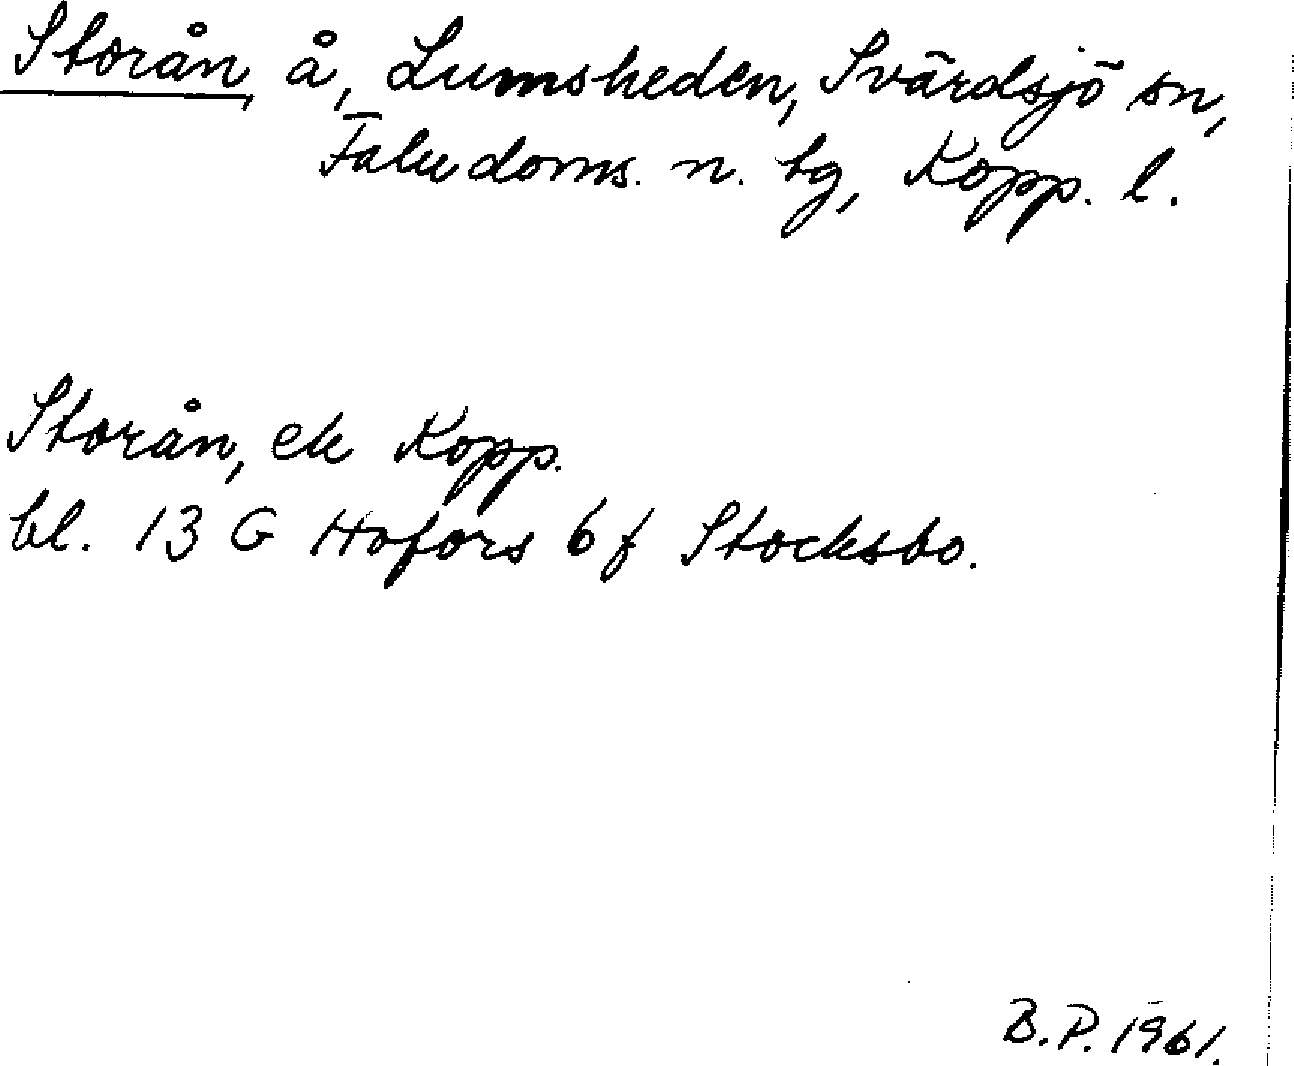 Storån, å, Lumsheden, Svärdsjö sn,
Falu doms. n. tg, Kopp. l.
Storån, ek Kopp.
bl. 13 G Hofors 6 f Stocksbo.
B.P. 1961.